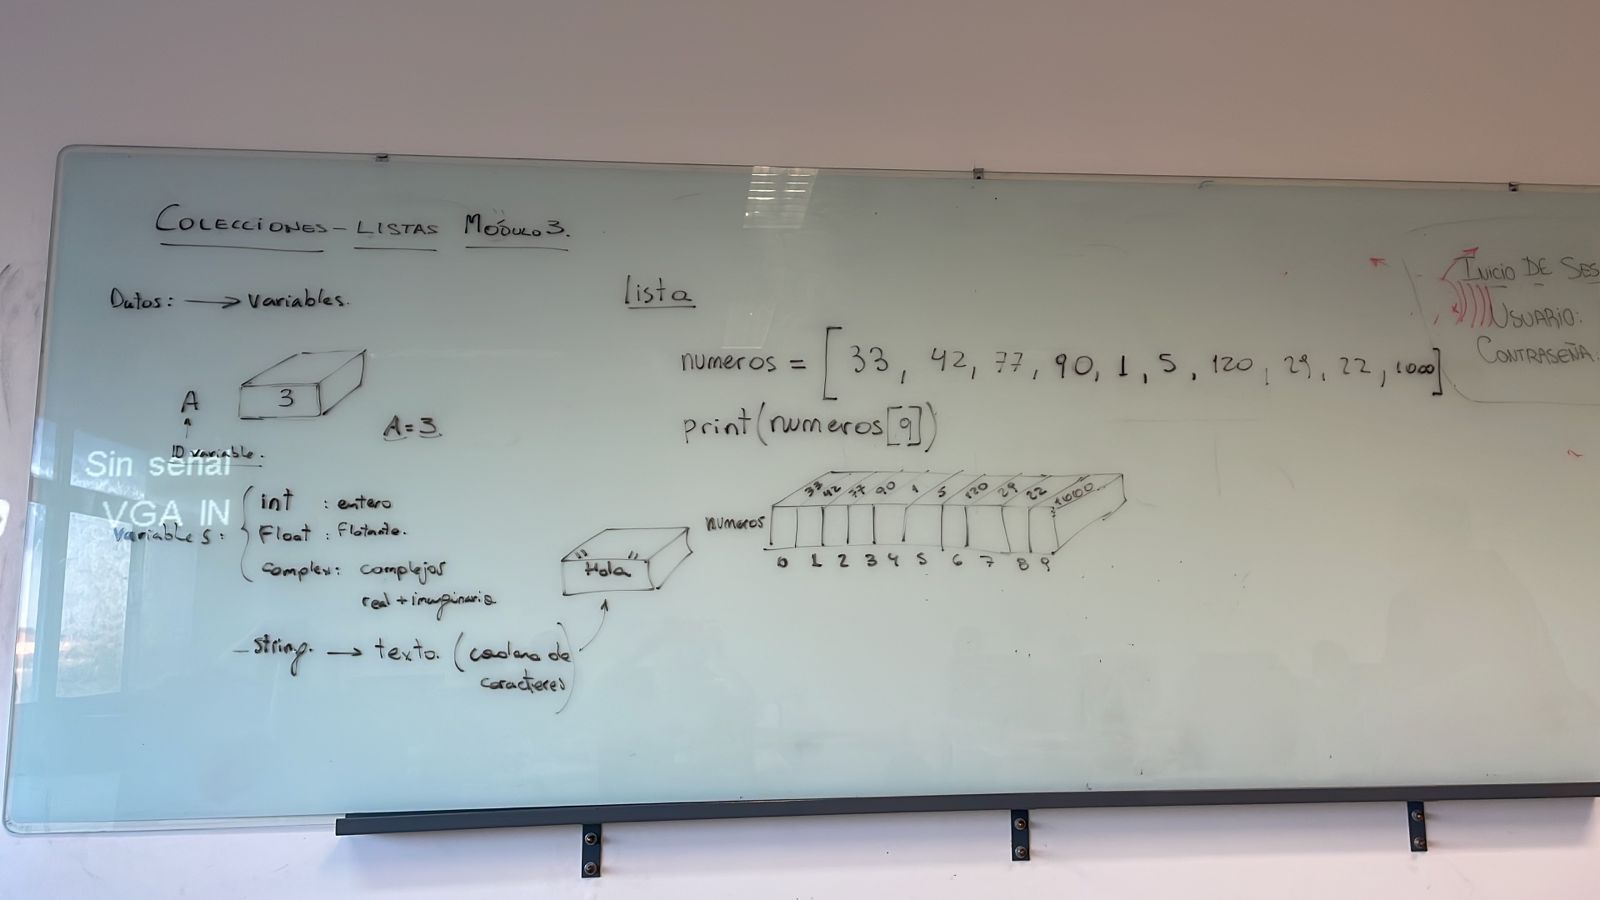 COLECCIONES - LISTAS MÓDULO 3.
Datos: → Variables.
A
3
A = 3
ID variable.
Sin señal
VGA IN
Variables:
int : entero
Float : Flotante.
Complex: complejos
real + imaginaria
- String. → texto. (cadena de
caracteres)
"Hola"
Lista
numeros = [33, 42, 77, 90, 1, 5, 120, 29, 22, 1000]
print(numeros[9])
33 42 77 90 1 5 120 29 22 1000
numeros
0 1 2 3 4 5 6 7 8 9
INICIO DE SES
USUARIO:
CONTRASEÑA: